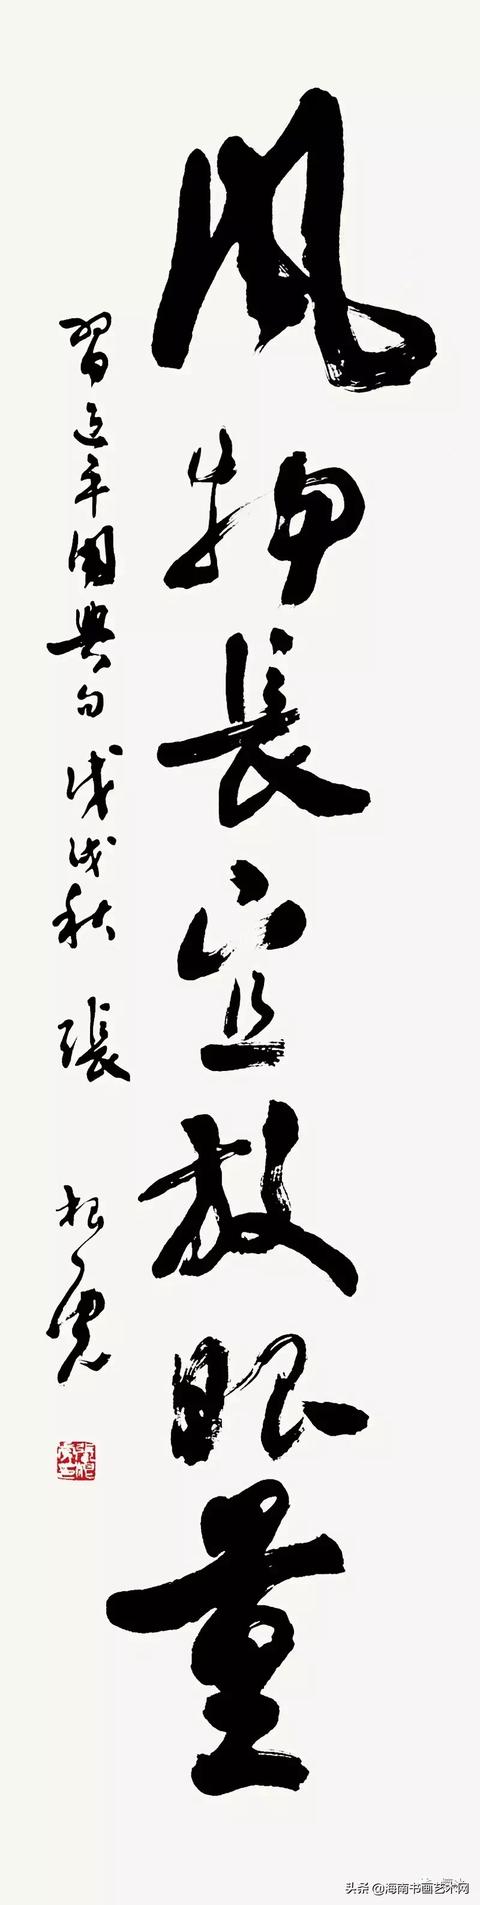 风物長宜放眼量
習近平用典句 戊戌秋 張根虎
头条 @海南书画艺术网